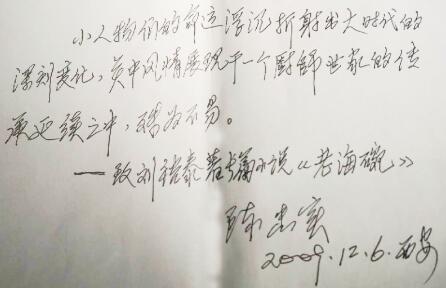 小人物们的命运浮沉折射出大时代的
深刻变化,关中风情展现于一个厨师世家的传
承延续之中,殊为不易。
——致刘桂泰著长篇小说《老海碗》
陈忠实
2009.12.6.西安